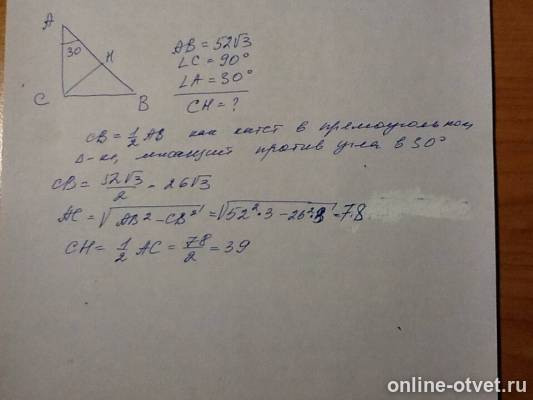 A
30
H
C
B
AB = 52√3
∠C = 90°
∠A = 30°
CH = ?
CB = 1/2 AB как катет в прямоугольном
Δ-ке, лежащий против угла в 30°
CB = 52√3/2 = 26√3
AC = √(AB² - CB²) = √(52²·3 - 26²·3) = 78
CH = 1/2 AC = 78/2 = 39
online-otvet.ru